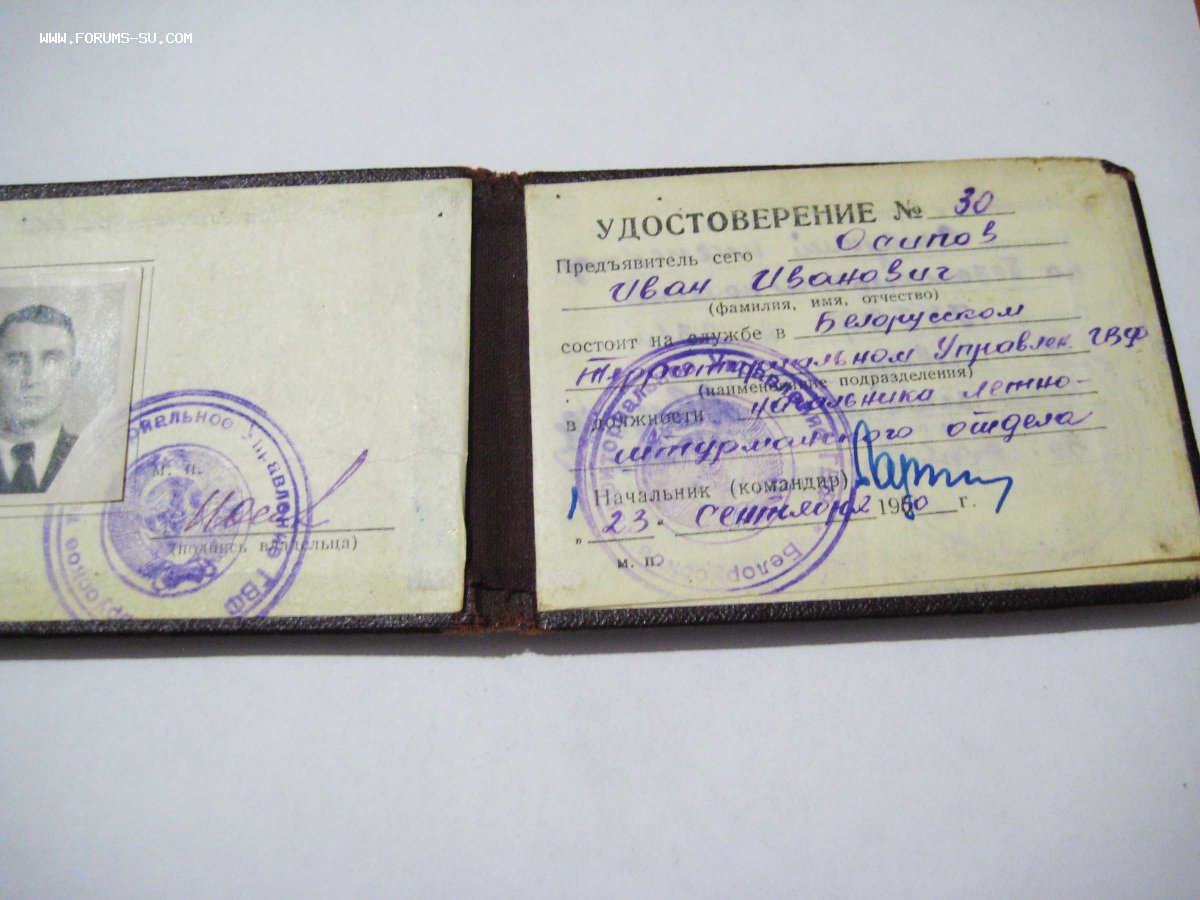 WWW.FORUMS-SU.COM
М. П.
(подпись владельца)
УДОСТОВЕРЕНИЕ № 30
Предъявитель сего Осипов
Иван Иванович
(фамилия, имя, отчество)
состоит на службе в Белорусском
Территориальном Управлен. ГВФ
(наименование подразделения)
в должности начальника летно-
штурманского отдела
Начальник (командир)
„23“ сентября 1960 г.
М. П.